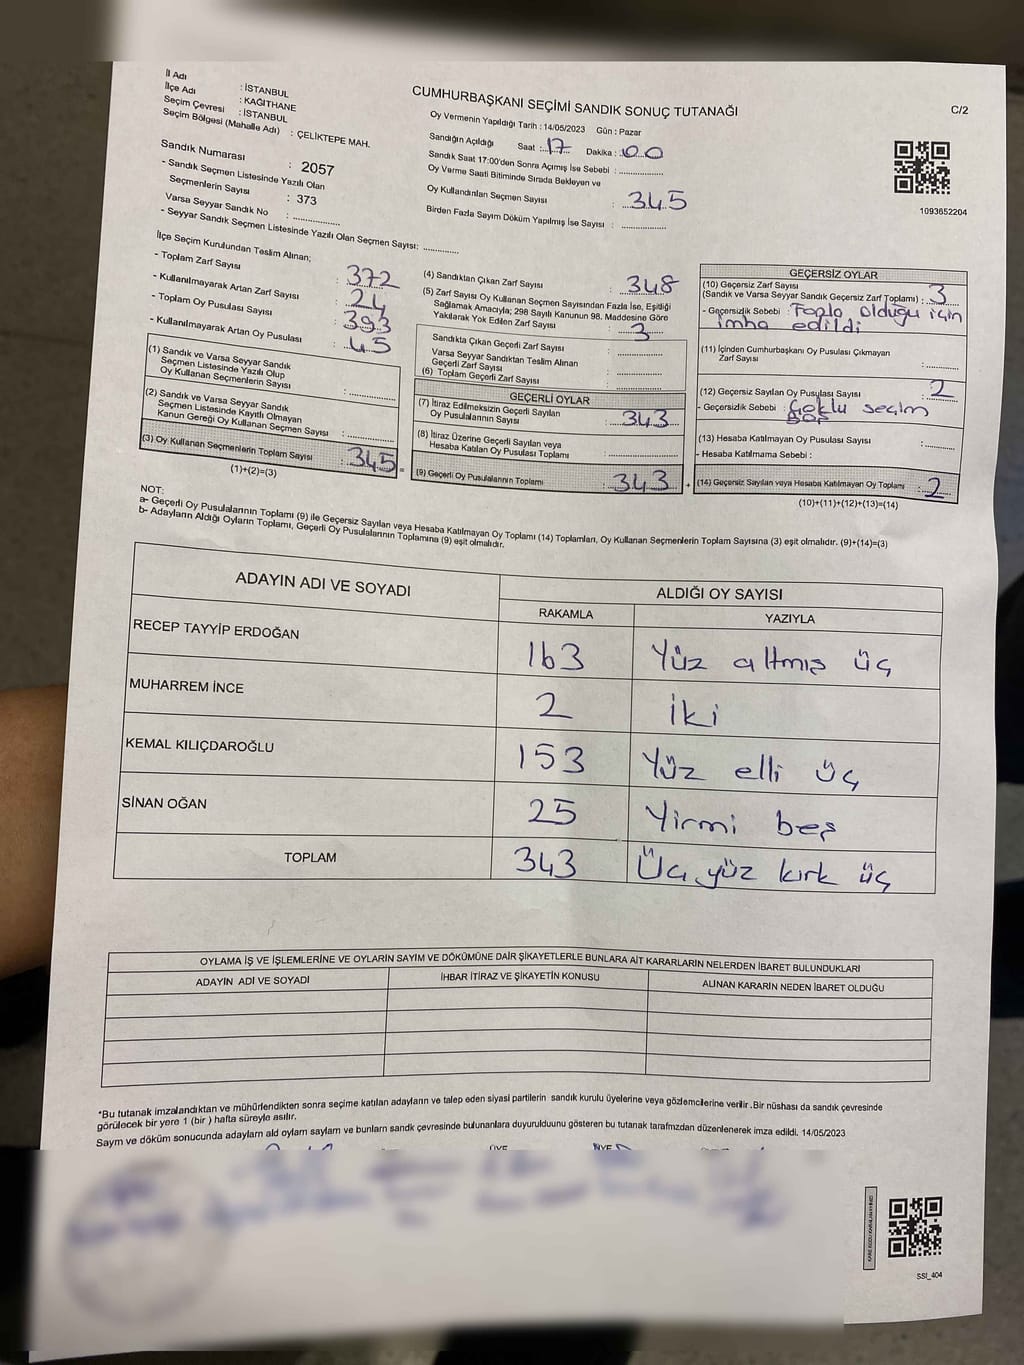 İl Adı : İSTANBUL
İlçe Adı : KAĞITHANE
Seçim Çevresi : İSTANBUL
Seçim Bölgesi (Mahalle Adı) : ÇELİKTEPE MAH.
Sandık Numarası : 2057
- Sandık Seçmen Listesinde Yazılı Olan
Seçmenlerin Sayısı : 373
Varsa Seyyar Sandık No : ..................
- Seyyar Sandık Seçmen Listesinde Yazılı Olan Seçmen Sayısı: .............
CUMHURBAŞKANI SEÇİMİ SANDIK SONUÇ TUTANAĞI
C/2
Oy Vermenin Yapıldığı Tarih : 14/05/2023 Gün : Pazar
Sandığın Açıldığı Saat : 17 Dakika : 00
Sandık Saat 17:00'den Sonra Açılmış İse Sebebi : ................
Oy Verme Saati Bitiminde Sırada Bekleyen ve
Oy Kullandırılan Seçmen Sayısı : 345
Birden Fazla Sayım Döküm Yapılmış İse Sayısı : ................
1093652204
İlçe Seçim Kurulundan Teslim Alınan;
- Toplam Zarf Sayısı : 372
- Kullanılmayarak Artan Zarf Sayısı : 24
- Toplam Oy Pusulası Sayısı : 393
- Kullanılmayarak Artan Oy Pusulası : 45
(1) Sandık ve Varsa Seyyar Sandık
Seçmen Listesinde Yazılı Olup
Oy Kullanan Seçmenlerin Sayısı : ................
(2) Sandık ve Varsa Seyyar Sandık
Seçmen Listesinde Kayıtlı Olmayan
Kanun Gereği Oy Kullanan Seçmen Sayısı : ................
(3) Oy Kullanan Seçmenlerin Toplam Sayısı : 345 =
(1)+(2)=(3)
(4) Sandıktan Çıkan Zarf Sayısı : 348
(5) Zarf Sayısı Oy Kullanan Seçmen Sayısından Fazla İse, Eşitliği
Sağlamak Amacıyla; 298 Sayılı Kanunun 98. Maddesine Göre
Yakılarak Yok Edilen Zarf Sayısı : 3
Sandıkta Çıkan Geçerli Zarf Sayısı : ................
Varsa Seyyar Sandıktan Teslim Alınan
Geçerli Zarf Sayısı : ................
(6) Toplam Geçerli Zarf Sayısı : ................
GEÇERLİ OYLAR
(7) İtiraz Edilmeksizin Geçerli Sayılan
Oy Pusulalarının Sayısı : 343
(8) İtiraz Üzerine Geçerli Sayılan veya
Hesaba Katılan Oy Pusulası Toplamı : ................
(9) Geçerli Oy Pusulalarının Toplamı : 343 +
GEÇERSİZ OYLAR
(10) Geçersiz Zarf Sayısı
(Sandık ve Varsa Seyyar Sandık Geçersiz Zarf Toplamı) : 3
- Geçersizlik Sebebi : Fazla olduğu için
imha edildi
(11) İçinden Cumhurbaşkanı Oy Pusulası Çıkmayan
Zarf Sayısı : ................
(12) Geçersiz Sayılan Oy Pusulası Sayısı : 2
- Geçersizlik Sebebi : Çoklu seçim
(13) Hesaba Katılmayan Oy Pusulası Sayısı : ................
- Hesaba Katılmama Sebebi :
(14) Geçersiz Sayılan veya Hesaba Katılmayan Oy Toplamı : 2
(10)+(11)+(12)+(13)=(14)
NOT:
a- Geçerli Oy Pusulalarının Toplamı (9) ile Geçersiz Sayılan veya Hesaba Katılmayan Oy Toplamı (14) Toplamları, Oy Kullanan Seçmenlerin Toplam Sayısına (3) eşit olmalıdır. (9)+(14)=(3)
b- Adayların Aldığı Oyların Toplamı, Geçerli Oy Pusulalarının Toplamına (9) eşit olmalıdır.
ADAYIN ADI VE SOYADI
ALDIĞI OY SAYISI
RAKAMLA YAZIYLA
RECEP TAYYİP ERDOĞAN 163 Yüz altmış üç
MUHARREM İNCE 2 İki
KEMAL KILIÇDAROĞLU 153 Yüz elli üç
SİNAN OĞAN 25 Yirmi beş
TOPLAM 343 Üç yüz kırk üç
OYLAMA İŞ VE İŞLEMLERİNE VE OYLARIN SAYIM VE DÖKÜMÜNE DAİR ŞİKAYETLERLE BUNLARA AİT KARARLARIN NELERDEN İBARET BULUNDUKLARI
ADAYIN ADI VE SOYADI İHBAR İTİRAZ VE ŞİKAYETİN KONUSU ALINAN KARARIN NEDEN İBARET OLDUĞU
*Bu tutanak imzalandıktan ve mühürlendikten sonra seçime katılan adayların ve talep eden siyasi partilerin sandık kurulu üyelerine veya gözlemcilerine verilir.Bir nüshası da sandık çevresinde
görülecek bir yere 1 (bir ) hafta süreyle asılır.
Sayım ve döküm sonucunda adayların ald oylam saylam ve bunların sandk çevresinde bulunanlara duyurulduunu gösteren bu tutanak tarafmzdan düzenlenerek imza edildi. 14/05/2023
ÜYE ÜYE
SSI_404